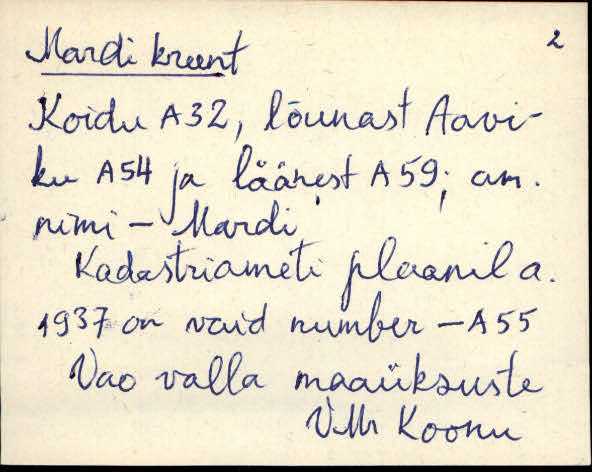 Mardi kruunt 2
Koidu A32, lõunast Aavi-
ku A54 ja läänest A59; am.
nimi - Mardi
Kadastriameti plaanil a.
1937 on vaid number - A55
Vao valla maaüksuste
VMr Koonu